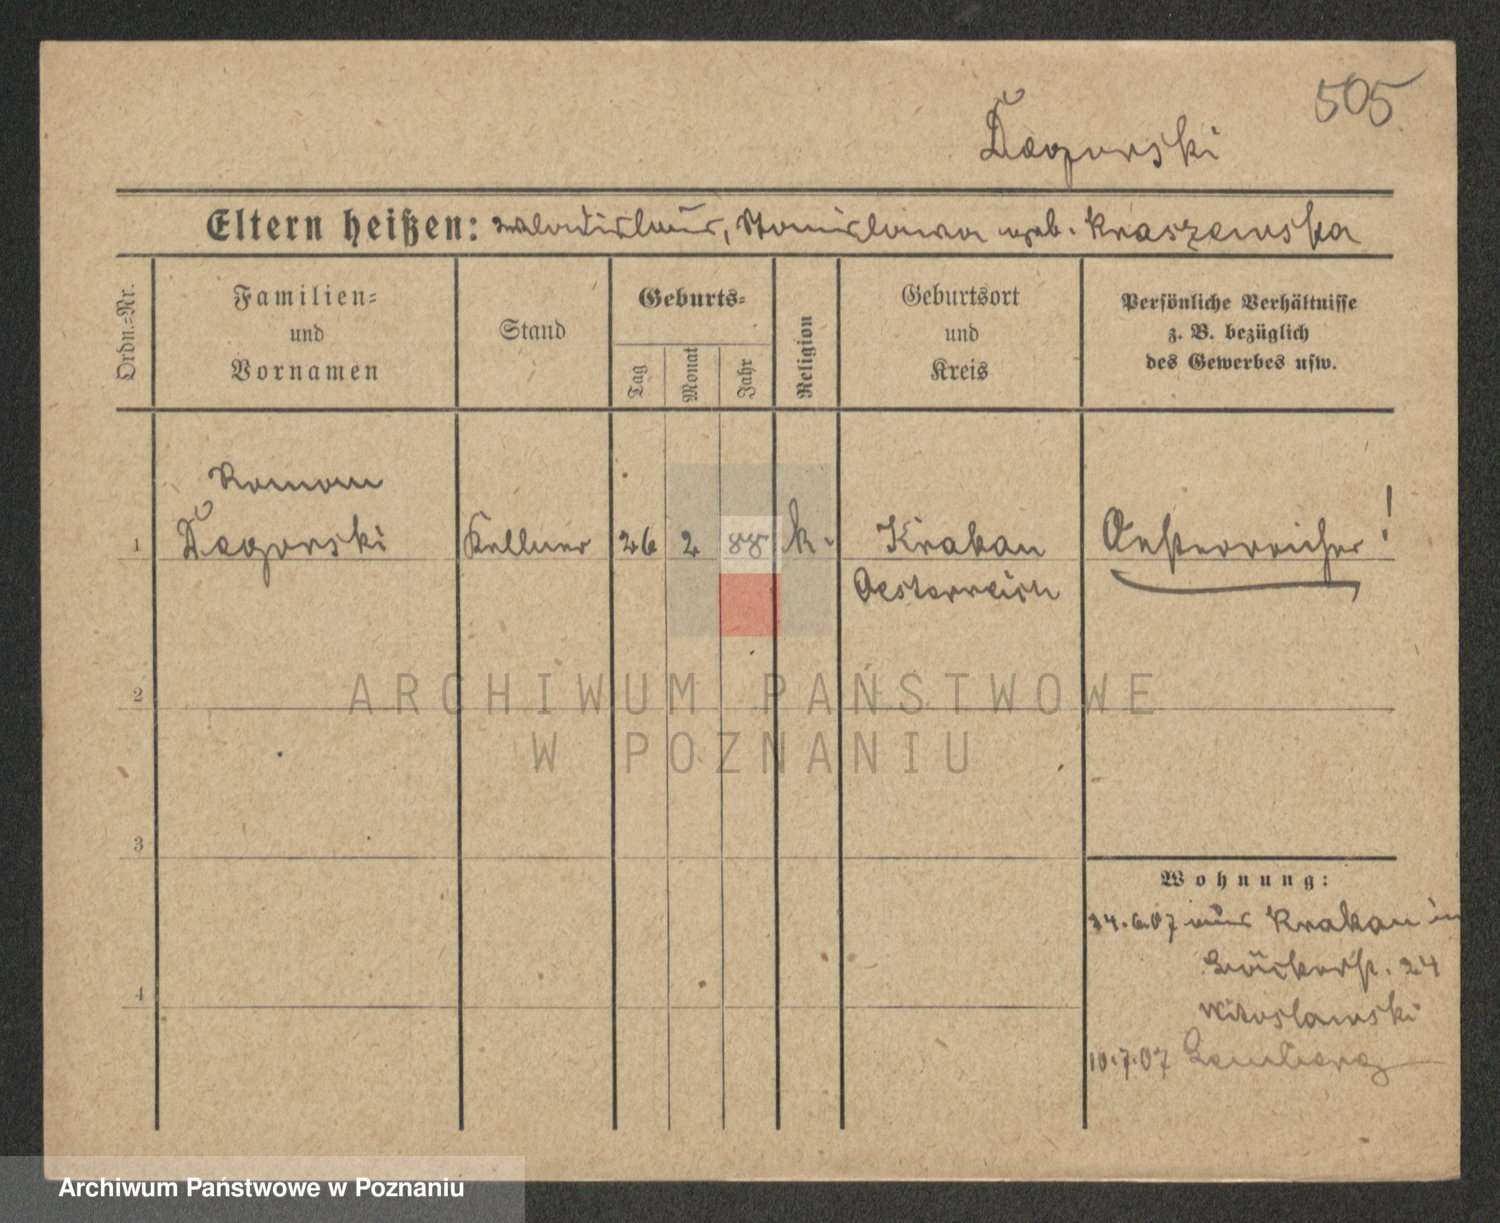 505
Degorski
Eltern heißen: Wladislaus, Stanislawa geb. Kraszewska
Ordn.=Nr.
Familien=
und
Vornamen
Stand
Geburts=
Tag
Monat
Jahr
Religion
Geburtsort
und
Kreis
Persönliche Verhältnisse
z. B. bezüglich
des Gewerbes usw.
Roman
1 Degorski Kellner 26 2 88 k. Krakau Oesterreicher!
Oesterreich
2
ARCHIWUM PAŃSTWOWE
W POZNANIU
3
Wohnung:
24.6.07 aus Krakau in
Bäckerst. 24
4
Witoslawski
10.7.07 Lemberg
Archiwum Państwowe w Poznaniu